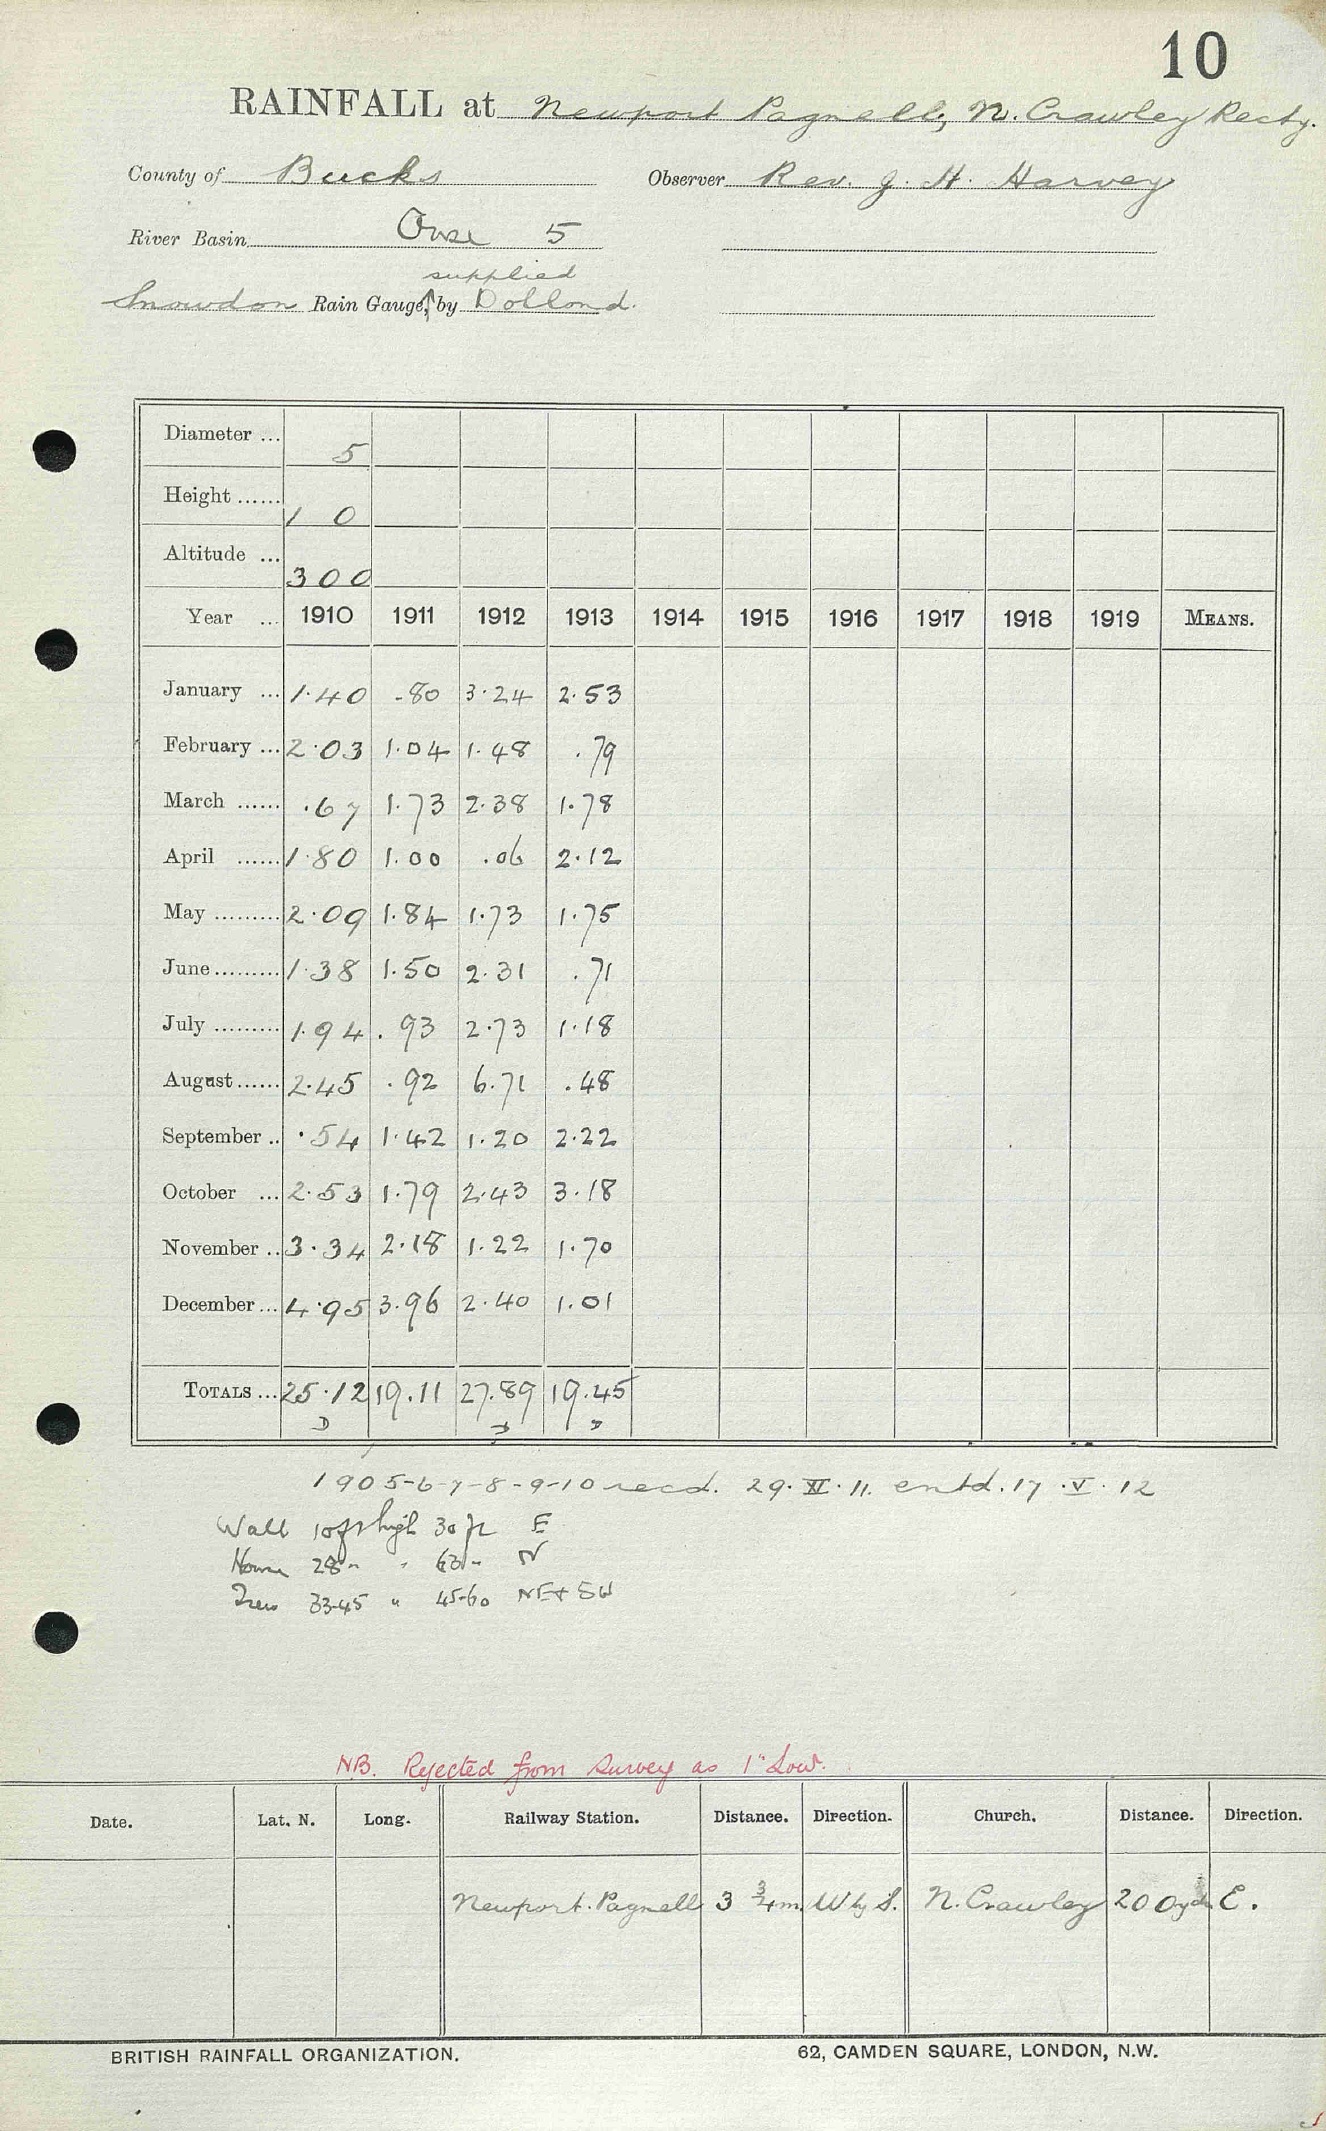 10
RAINFALL at Newport Pagnell, N. Crawley Recty.
County of Bucks Observer Rev. J. H. Harvey
River Basin Ouse 5
supplied
Snowdon Rain Gauge, by Dollond.
Diameter ... 5
Height ...... 1 0
Altitude ... 300
Year ... 1910 1911 1912 1913 1914 1915 1916 1917 1918 1919 MEANS.
January ... 1.40 .80 3.24 2.53
February ... 2.03 1.04 1.48 .79
March ...... .67 1.73 2.38 1.78
April ...... 1.80 1.00 .06 2.12
May ......... 2.09 1.84 1.73 1.75
June ......... 1.38 1.50 2.31 .71
July ......... 1.94 .93 2.73 1.18
August ...... 2.45 .92 6.71 .48
September .. .54 1.42 1.20 2.22
October ... 2.53 1.79 2.43 3.18
November .. 3.34 2.18 1.22 1.70
December ... 4.95 3.96 2.40 1.01
TOTALS ... 25.12 19.11 27.89 19.45
1905-6-7-8-9-10 recd. 29.XI.11. entd. 17.V.12
Wall 10ft high 30 ft E
House 28 " " 63 " N
Trees 33-45 " 45-60 NE + SW
NB. Rejected from Survey as 1" Low.
Date. Lat. N. Long. Railway Station. Distance. Direction. Church. Distance. Direction.
Newport Pagnell 3 3/4 m. W by S. N. Crawley 200 yds E.
BRITISH RAINFALL ORGANIZATION. 62, CAMDEN SQUARE, LONDON, N.W.